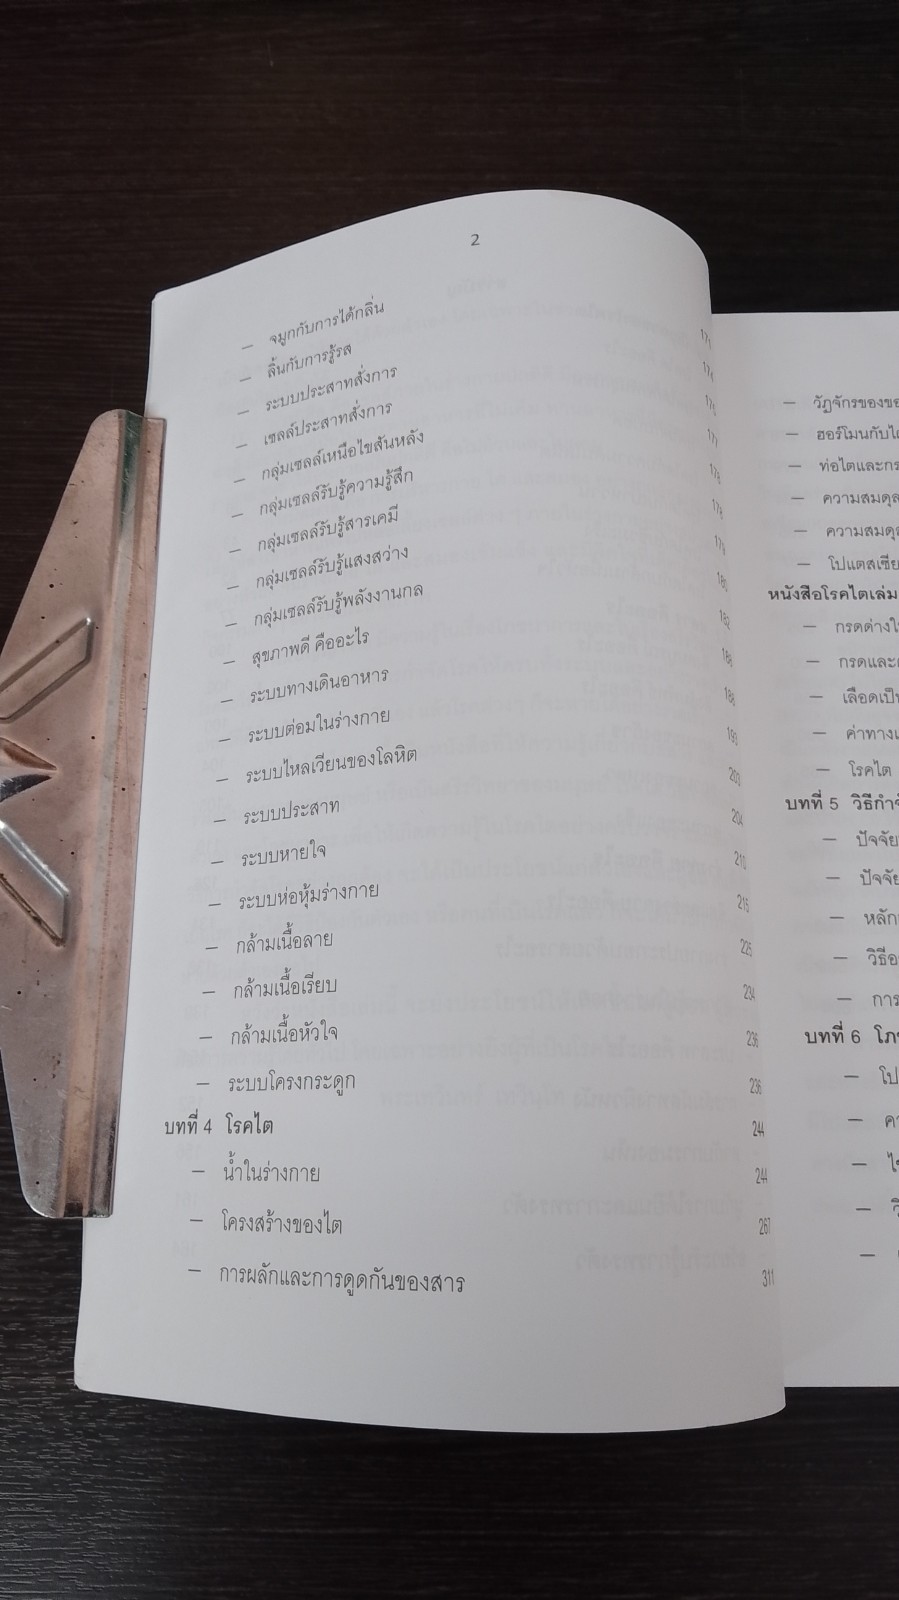 2
— จมูกกับการได้กลิ่น 171
— ลิ้นกับการรู้รส 174
— ระบบประสาทสั่งการ 176
— เซลล์ประสาทสั่งการ 177
— กลุ่มเซลล์เหนือไขสันหลัง 178
— กลุ่มเซลล์รับรู้ความรู้สึก 178
— กลุ่มเซลล์รับรู้สารเคมี 179
— กลุ่มเซลล์รับรู้แสงสว่าง 180
— กลุ่มเซลล์รับรู้พลังงานกล 182
— สุขภาพดี คืออะไร 186
— ระบบทางเดินอาหาร 188
— ระบบต่อมในร่างกาย 193
— ระบบไหลเวียนของโลหิต 203
— ระบบประสาท 204
— ระบบหายใจ 210
— ระบบห่อหุ้มร่างกาย 215
— กล้ามเนื้อลาย 225
— กล้ามเนื้อเรียบ 234
— กล้ามเนื้อหัวใจ 236
— ระบบโครงกระดูก 236
บทที่ 4 โรคไต 244
— น้ำในร่างกาย 244
— โครงสร้างของไต 267
— การผลักและการดูดกันของสาร 311
— วัฏจักรของขอ
— ฮอร์โมนกับไต
— ท่อไตและกร
— ความสมดุล
— ความสมดุล
— โปแตสเซีย
หนังสือโรคไตเล่ม
— กรดด่างใน
— กรดและด
— เลือดเป็น
— ค่าทางเ
— โรคไต
บทที่ 5 วิธีกำจั
— ปัจจัย
— ปัจจัย
— หลัก
— วิธีอ
— การ
บทที่ 6 โภช
— โป
— คา
— ไข
— วิ